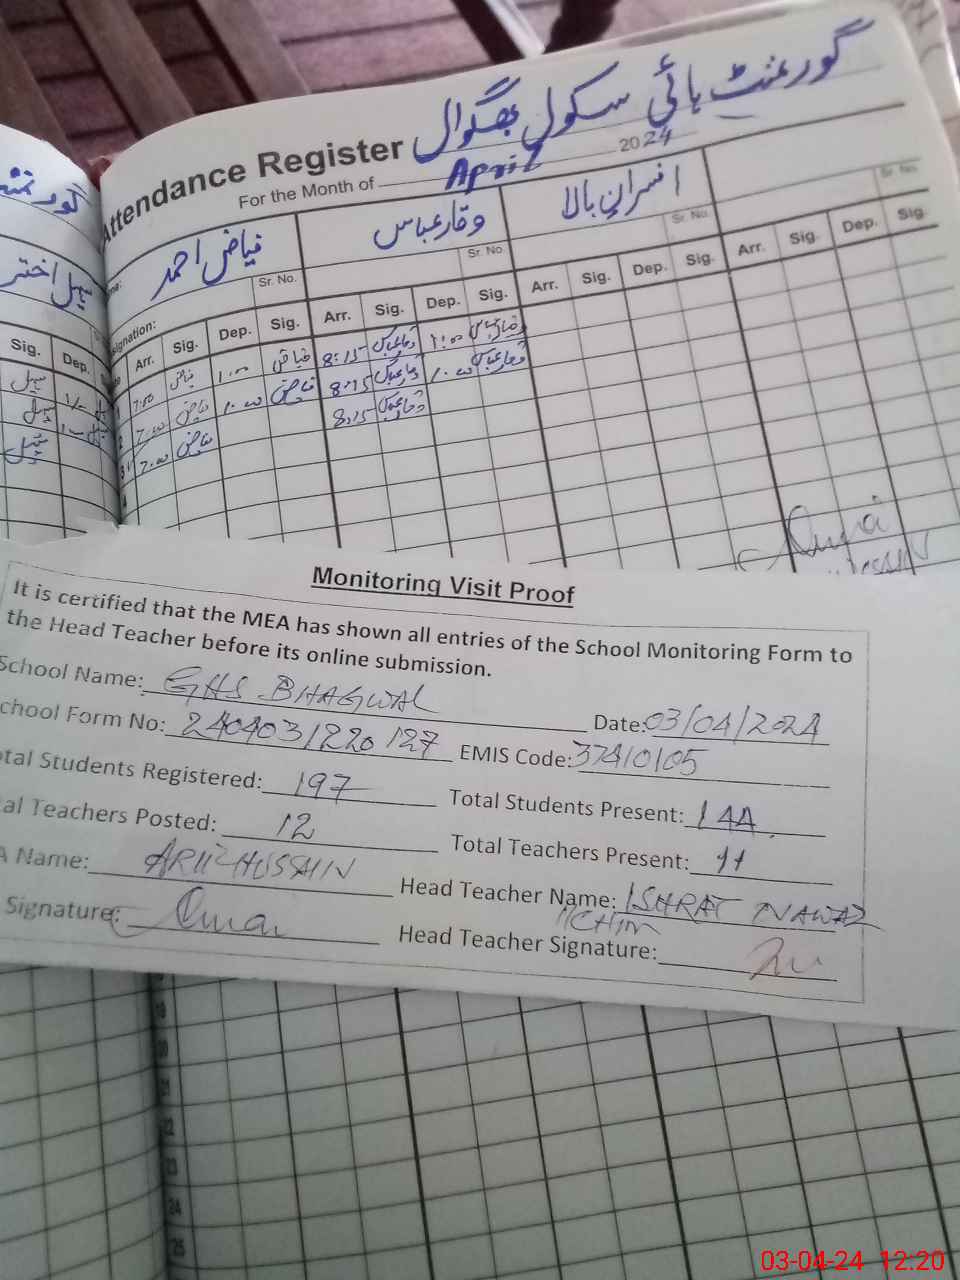 گورنمنٹ ہائی سکول بھگوال
Attendance Register
For the Month of April 2024
فیاض احمد وقار عباس افسران بالا
سہیل اختر
Sr. No. Sr. No. Sr. No. Sr. No.
Sig. Dep. Arr. Sig. Dep. Sig. Arr. Sig. Dep. Sig. Arr. Sig. Dep. Sig. Arr. Sig. Dep. Sig.
7:00 فیاض 1:00 فیاض 8:15 وقار عباس 1:00 وقار عباس
7:00 فیاض 1:00 فیاض 8:15 وقار عباس 1:00 وقار عباس
7:00 فیاض 8:15 وقار عباس
Monitoring Visit Proof
It is certified that the MEA has shown all entries of the School Monitoring Form to
the Head Teacher before its online submission.
School Name: GHS BHAGWAL Date: 03/04/2024
School Form No: 2404031220127 EMIS Code: 37410105
Total Students Registered: 197 Total Students Present: 144
Total Teachers Posted: 12 Total Teachers Present: 11
Name: HUSSAIN Head Teacher Name: ISHRAT NAWAZ
Signature: Head Teacher Signature:
23
24
25
03-04-24 12:20